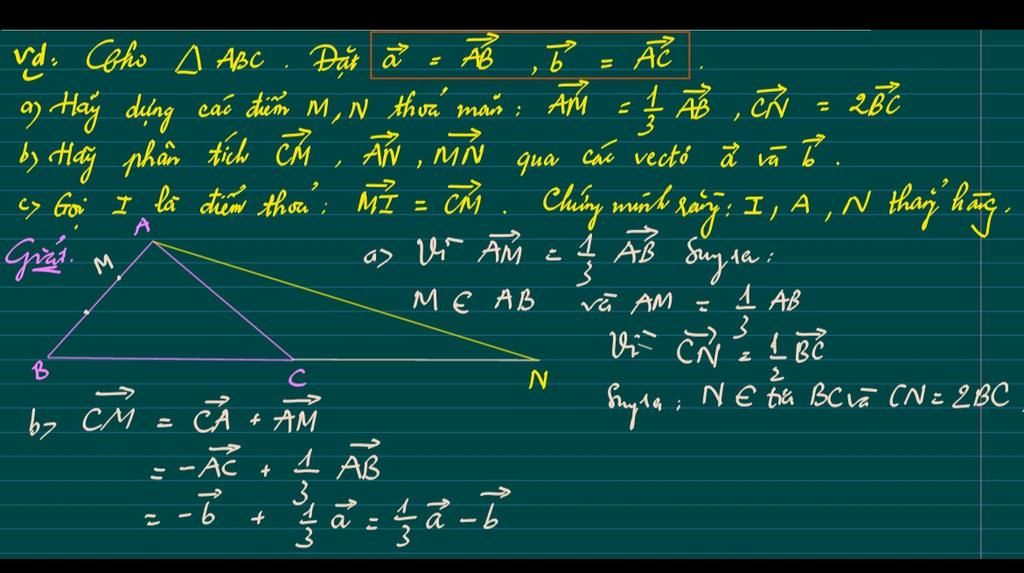 Vd: Cho △ ABC. Đặt a⃗ = AB⃗, b⃗ = AC⃗.
a) Hãy dựng các điểm M, N thoả mãn: AM⃗ = 1/3 AB⃗, CN⃗ = 2BC⃗
b) Hãy phân tích CM⃗, AN⃗, MN⃗ qua các vectơ a⃗ và b⃗.
c) Gọi I là điểm thoả: MI⃗ = CM⃗. Chứng minh rằng: I, A, N thẳng hàng.
Giải.
A
M
B
C
N
a) Vì AM⃗ = 1/3 AB⃗ Suy ra:
M ∈ AB và AM = 1/3 AB
Vì CN⃗ = 1/2 BC⃗
Suy ra: N ∈ tia BC và CN = 2BC
b) CM⃗ = CA⃗ + AM⃗
= -AC⃗ + 1/3 AB⃗
= -b⃗ + 1/3 a⃗ = 1/3 a⃗ - b⃗